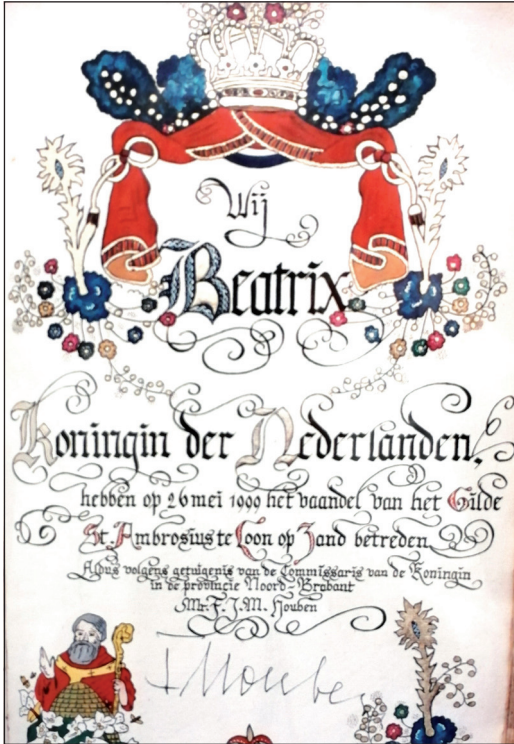 Wij
Beatrix
Koningin der Nederlanden,
hebben op 26 mei 1999 het vaandel van het Gilde
St. Ambrosius te Loon op Zand betreden
Aldus volgens getuigenis van de Commissaris van de Koningin
in de provincie Noord-Brabant
Mr. F.J.M. Houben
FHouben